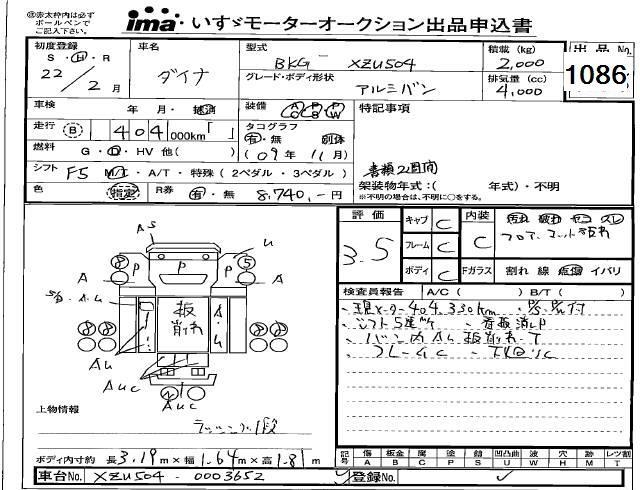 ※赤太枠内は必ず
ボールペンで
ご記入下さい。
ima いすゞモーターオークション出品申込書
初度登録 S・H・R 22/2月
車名 ダイナ
型式 BKG - XZU504
グレード・ボディ形状 アルミバン
積載 (kg) 2,000
排気量 (cc) 4,000
出品No. 1086
車検 年 月・抹消
装備 AC PS PW
特記事項
走行 B 404,000km「 」
タコグラフ 有・無 別体 (09年 11月)
燃料 G・D・HV 他( )
書類2週間
シフト F5 M/T・A/T・特殊(2ペダル・3ペダル)
架装物年式:( 年式)・不明
※不明の場合は、不明に○をする。
色 指定 R券 有・無 8,740.-円
評価 3.5
キャブ C
フレーム C
ボディ C
内装 C
汚れ 破れ ヤニ スレ
Fガラス 割れ 線 点傷 イバリ
検査員報告 A/C( ) B/T( )
現メーター404,330km
シフト5速 看板消し
バン内
フレームC
AS
U
P P P
A A
5
板
AU
AUC
AUC
上物情報
ラッシング2段
ボディ内寸約 長3.19m×幅1.64m×高1.81m
記号 傷A 板金B 腐C 塗P 錆S 凹凸曲U 波W 穴H 跡M レツ割T
車台No. XZU504 - 0003652
登録No.